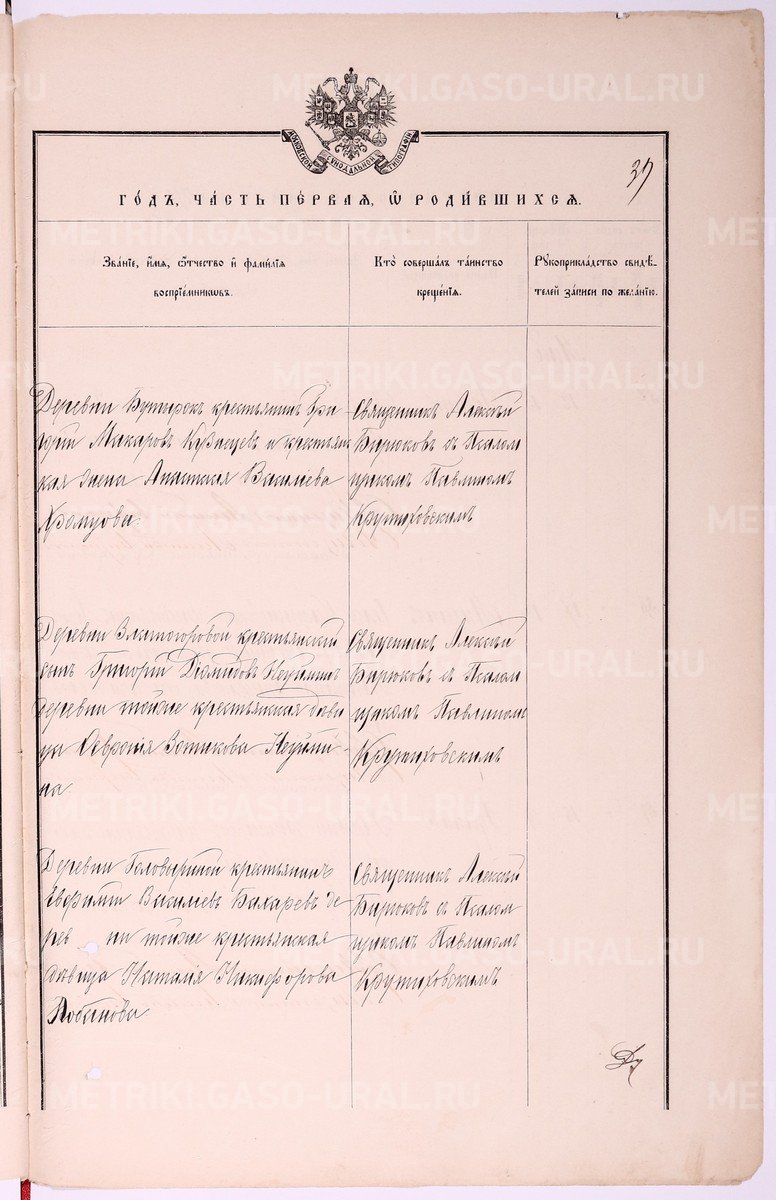 METRIKI.GASO-URAL.RU
МОСКОВСКОЙ СИНОДАЛЬНОЙ ТИПОГРАФІИ
37
ГО́ДЪ, ЧА́СТЬ ПЕ́РВАЯ, Ѿ РОДИ́ВШИХСЯ.
Зва́нїе, и́мя, ѻ҆́тчество и҆ фами́лїя
воспрїе́мникѡвъ.
Кто̀ соверша́лъ та́инство
креще́нїя.
Рꙋкоприкла́дство свидѣ́-
телей за́писи по жела́нїю.
Деревни Бутырокъ крестьянинъ Гри
горій Макаровъ Кузнецевъ и крестьян
ская жена Анастасія Василіева
Храмцова.
Священникъ Алексѣй
Бирюковъ съ Псалом
щикомъ Павлиномъ
Крутиховскимъ
Деревни Златогоровой крестьянскій
сынъ Григорій Неуйминъ
деревни тойже крестьянская дѣви
ца Февронія Зотикова Неуйми
на
Священникъ Алексѣй
Бирюковъ съ Псалом
щикомъ Павлиномъ
Крутиховскимъ
Деревни Головыриной крестьянинъ
Евфимій Василіевъ Бахаревъ де
рев ни тойже крестьянская
дѣвица Наталія Никифорова
Лобанова
Священникъ Алексѣй
Бирюковъ съ Псалом
щикомъ Павлиномъ
Крутиховскимъ